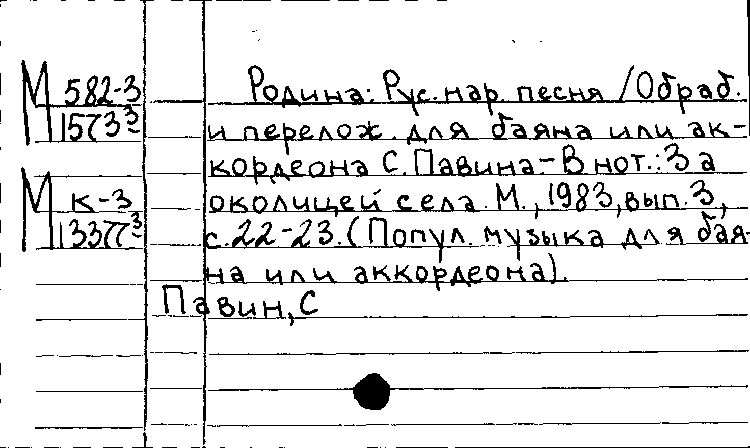 М 582-3
1573 3
Родина: Рус. нар. песня /Обраб.
и перелож. для баяна или ак-
кордеона С. Павина - В нот.: За
М к-3
13377 3
околицей села. М., 1983, вып. 3,
с. 22-23. (Попул. музыка для бая-
на или аккордеона).
Павин, С